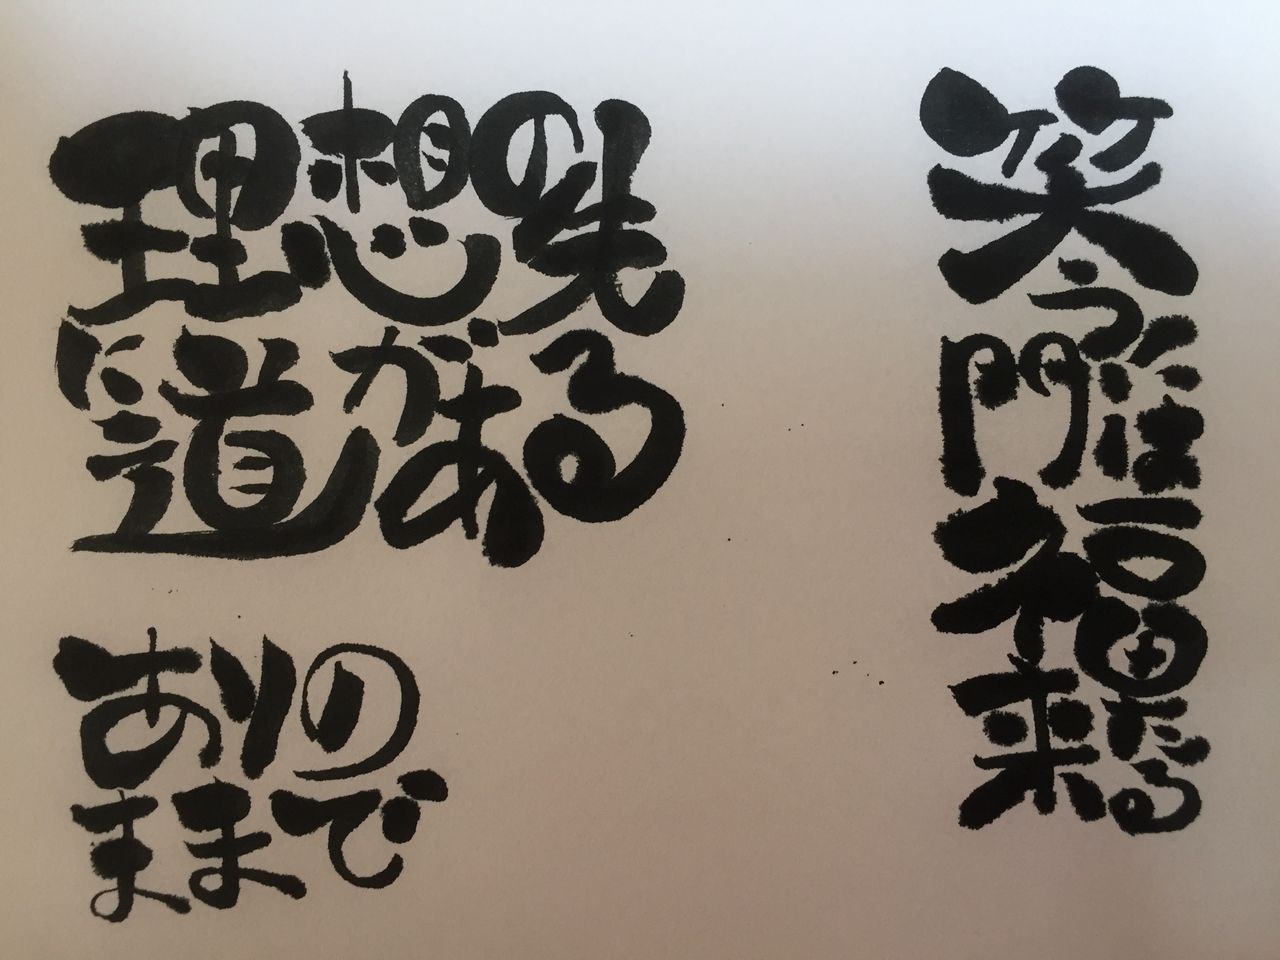 理想の先
に道がある
ありの
ままで
笑う門には福来たる